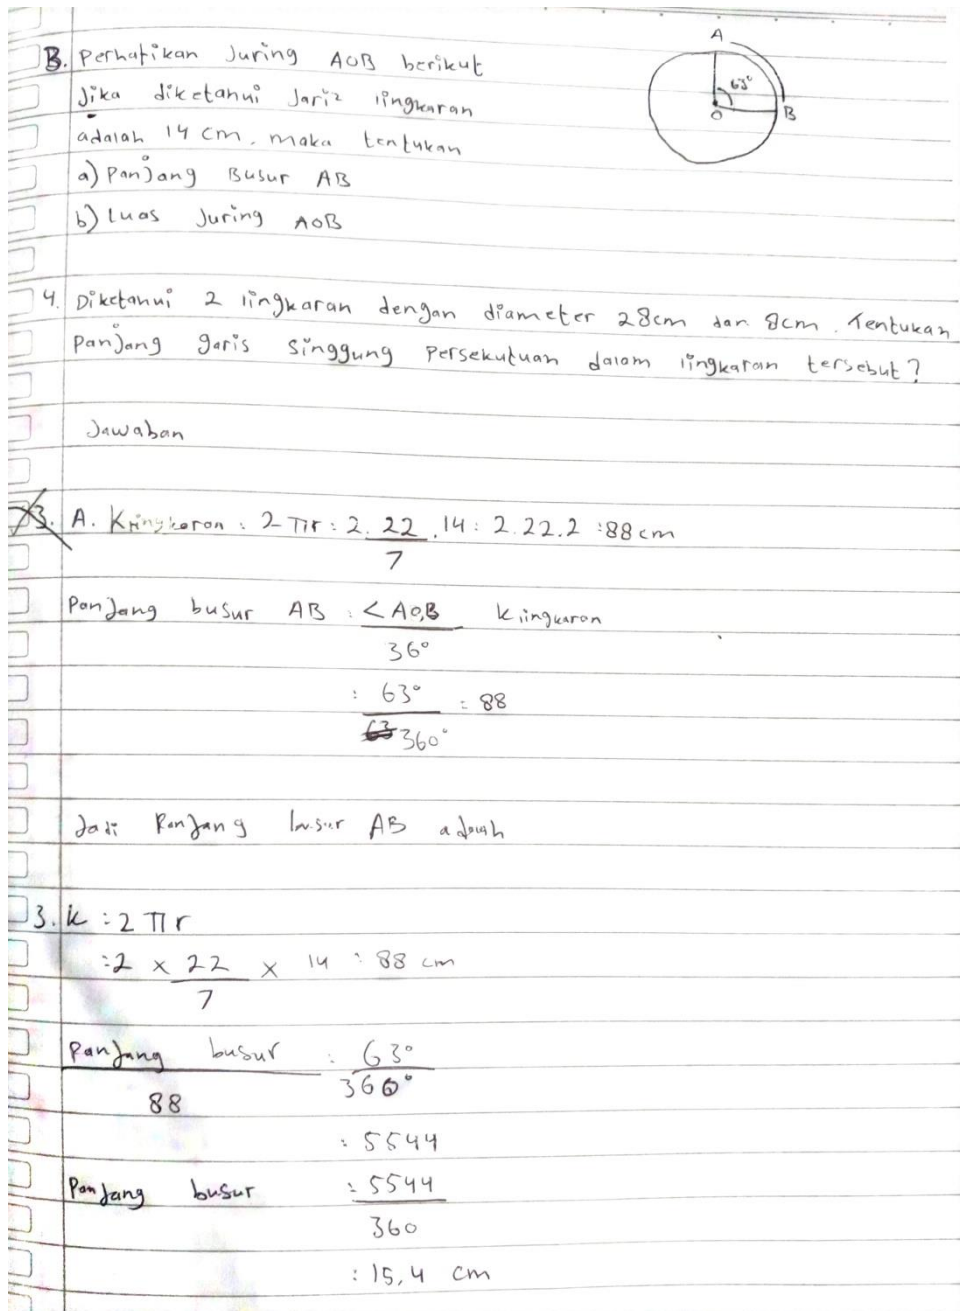 B. Perhatikan Juring AOB berikut
Jika diketahui Jari2 lingkaran
adalah 14 cm. maka tentukan
a) Panjang Busur AB
b) Luas Juring AOB
A
63°
O
B
4. Diketahui 2 lingkaran dengan diameter 28cm dan 8cm. Tentukan
Panjang garis Singgung Persekutuan dalam lingkaran tersebut?
Jawaban
3. A. Klingkaran : 2 πr : 2. 22/7 . 14 : 2.22.2 : 88 cm
Panjang busur AB : <AOB/36° Klingkaran
: 63°/360° = 88
Jadi Panjang busur AB adalah
3. K : 2 πr
: 2 × 22/7 × 14 : 88 cm
Panjang busur/88 : 63°/360°
: 5544
Panjang busur : 5544/360
: 15,4 cm